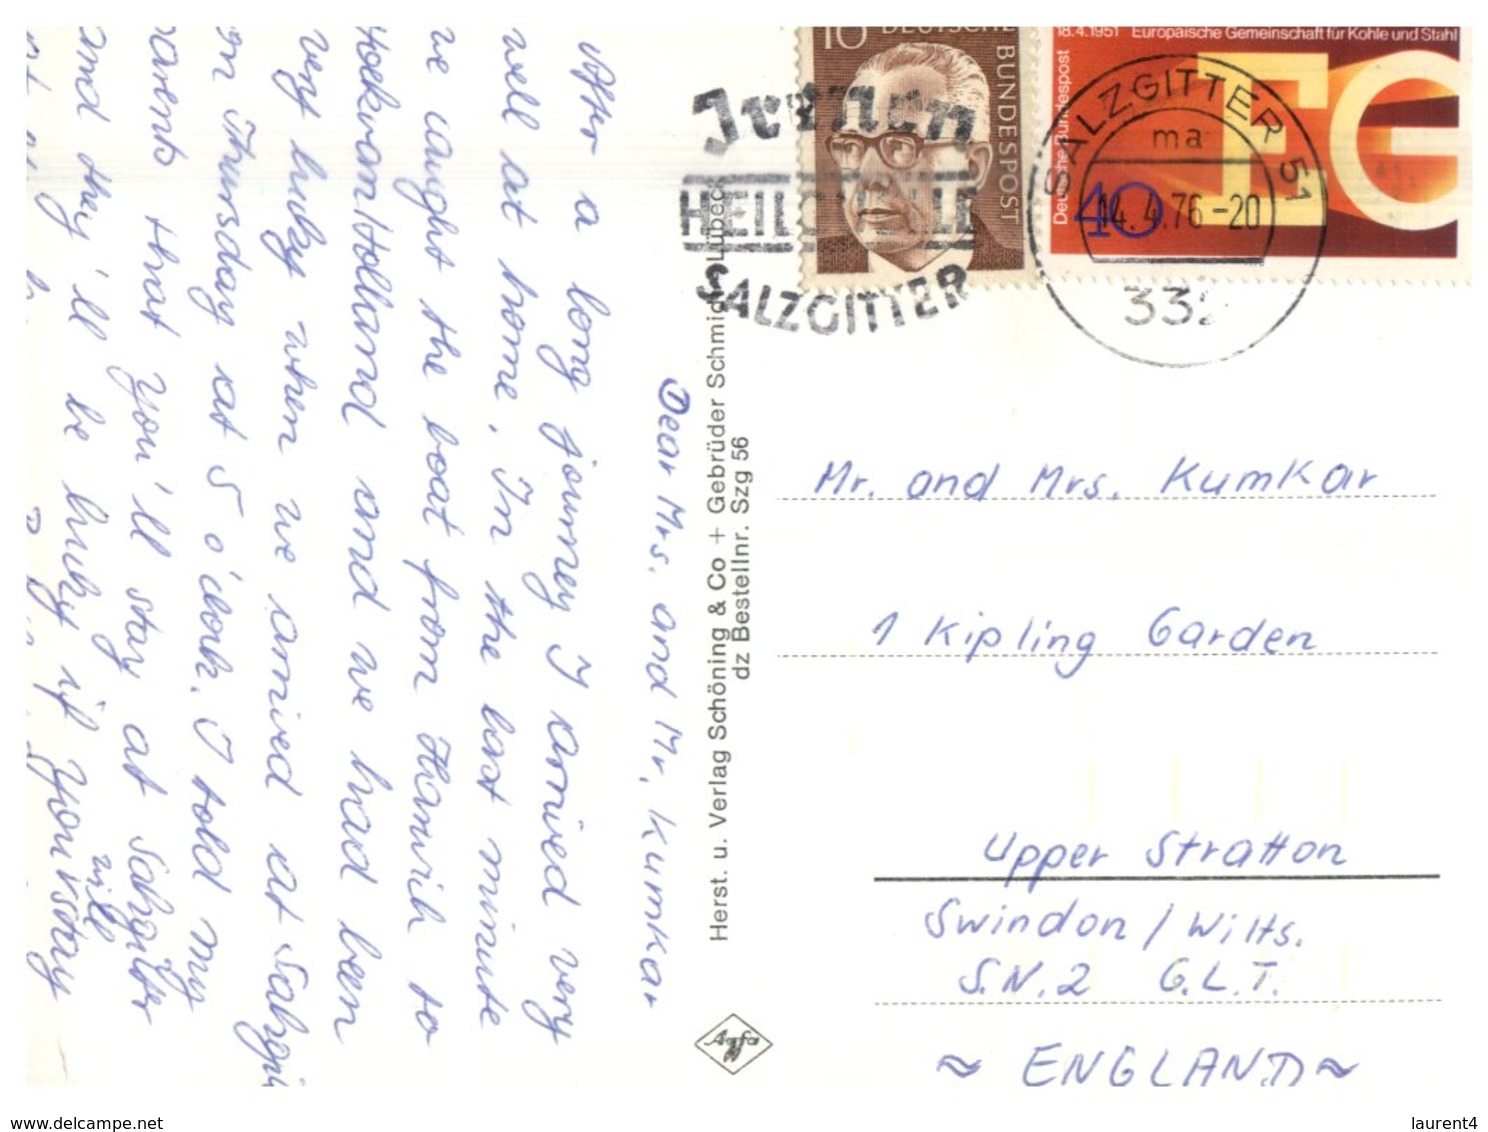 Dear Mrs. and Mr. Kumkar
After a long journey I arrived very
well at home. In the last minute
we caught the boat from Harwich to
Hoekvan Holland and we had been
very lucky when we arrived at Salzgi
on Thursday at 5 o'clock. I told my
parents that you'll stay at Salzgitter
will
and they'll be lucky if you stay
Herst. u. Verlag Schöning & Co + Gebrüder Schmidt, Lübeck
dz Bestellnr. Szg 56
Agfa
10 DEUTSCHE
BUNDESPOST
18.4.1951 Europäische Gemeinschaft für Kohle und Stahl
Deutsche Bundespost
40
EG
SALZGITTER 51
ma
14.4.76-20
332
SALZGITTER
Mr. and Mrs. Kumkar
1 Kipling Garden
Upper Stratton
Swindon / Wilts.
S.N.2 G.L.T.
~ ENGLAND ~
www.delcampe.net
laurent4